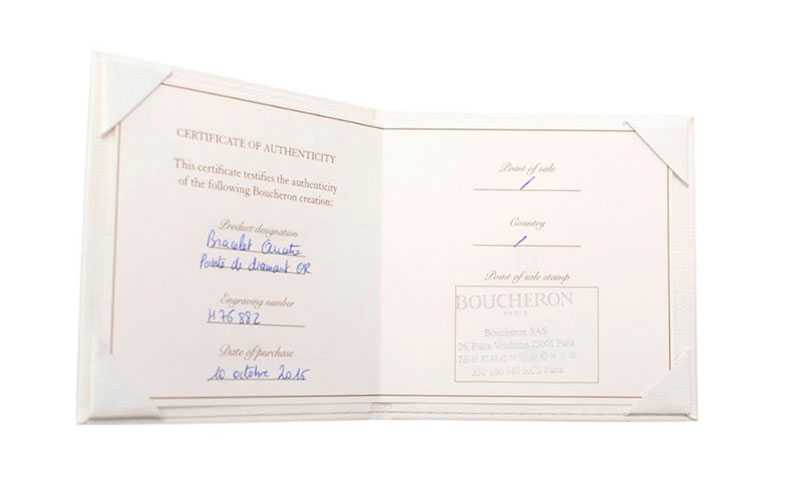 CERTIFICATE OF AUTHENTICITY
This certificate testifies the authenticity
of the following Boucheron creation:
Product designation
Bracelet Quatre
Pointe de diamant OR
Engraving number
H76882
Date of purchase
10 octobre 2015
Point of sale
/
Country
/
Point of sale stamp
BOUCHERON
PARIS
Boucheron SAS
26, Place Vendôme 75001 Paris
RCS Paris